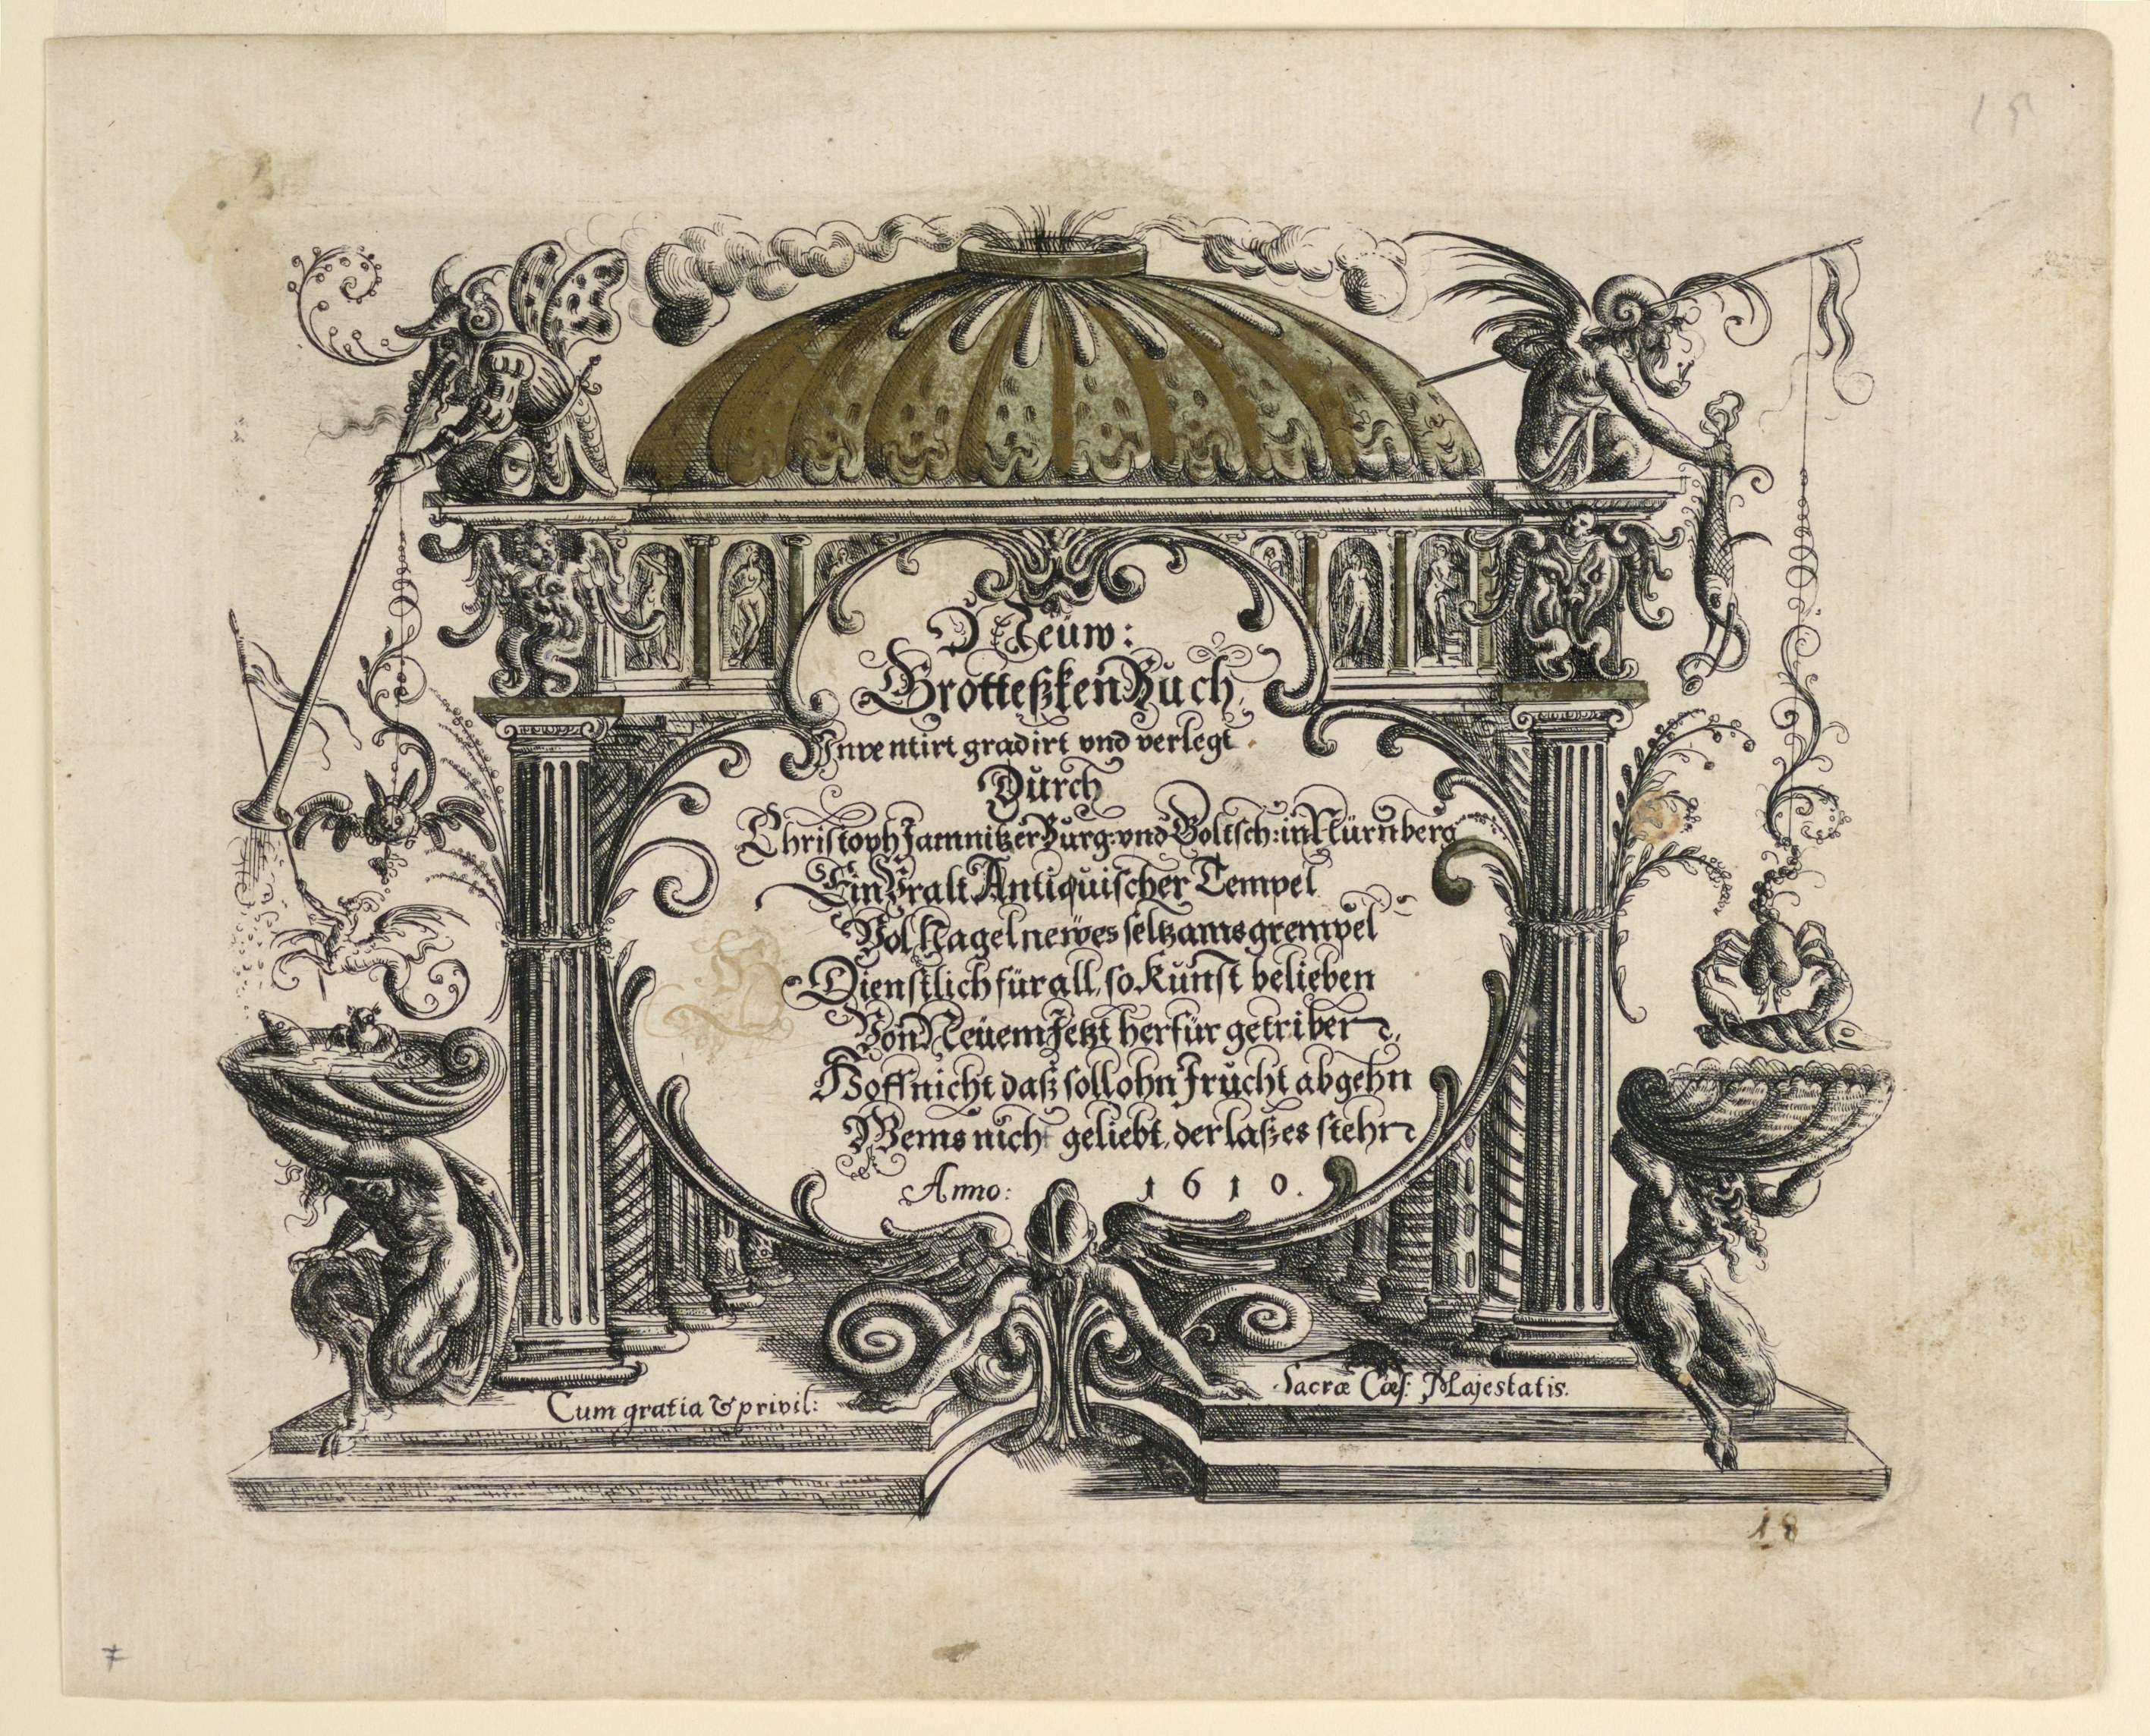 15
Neüw:
Grotteßken Buch
Inventirt gradirt vnd verlegt
Durch
Christoph Jamnitzer Burg: vnd Goltsch: in Nürnberg
Ein Vralt Antiquischer Tempel
Vol Nagelnewes seltzams grempel
Dienstlich für all, so Kunst belieben
Von Neüem Jetzt herfür getriben
Hoff nicht daß soll ohn Frucht abgehn
Wems nicht geliebt, der laß es stehn
Anno: 1610.
Cum gratia & privil: Sacræ Cæs: Majestatis.
18
7